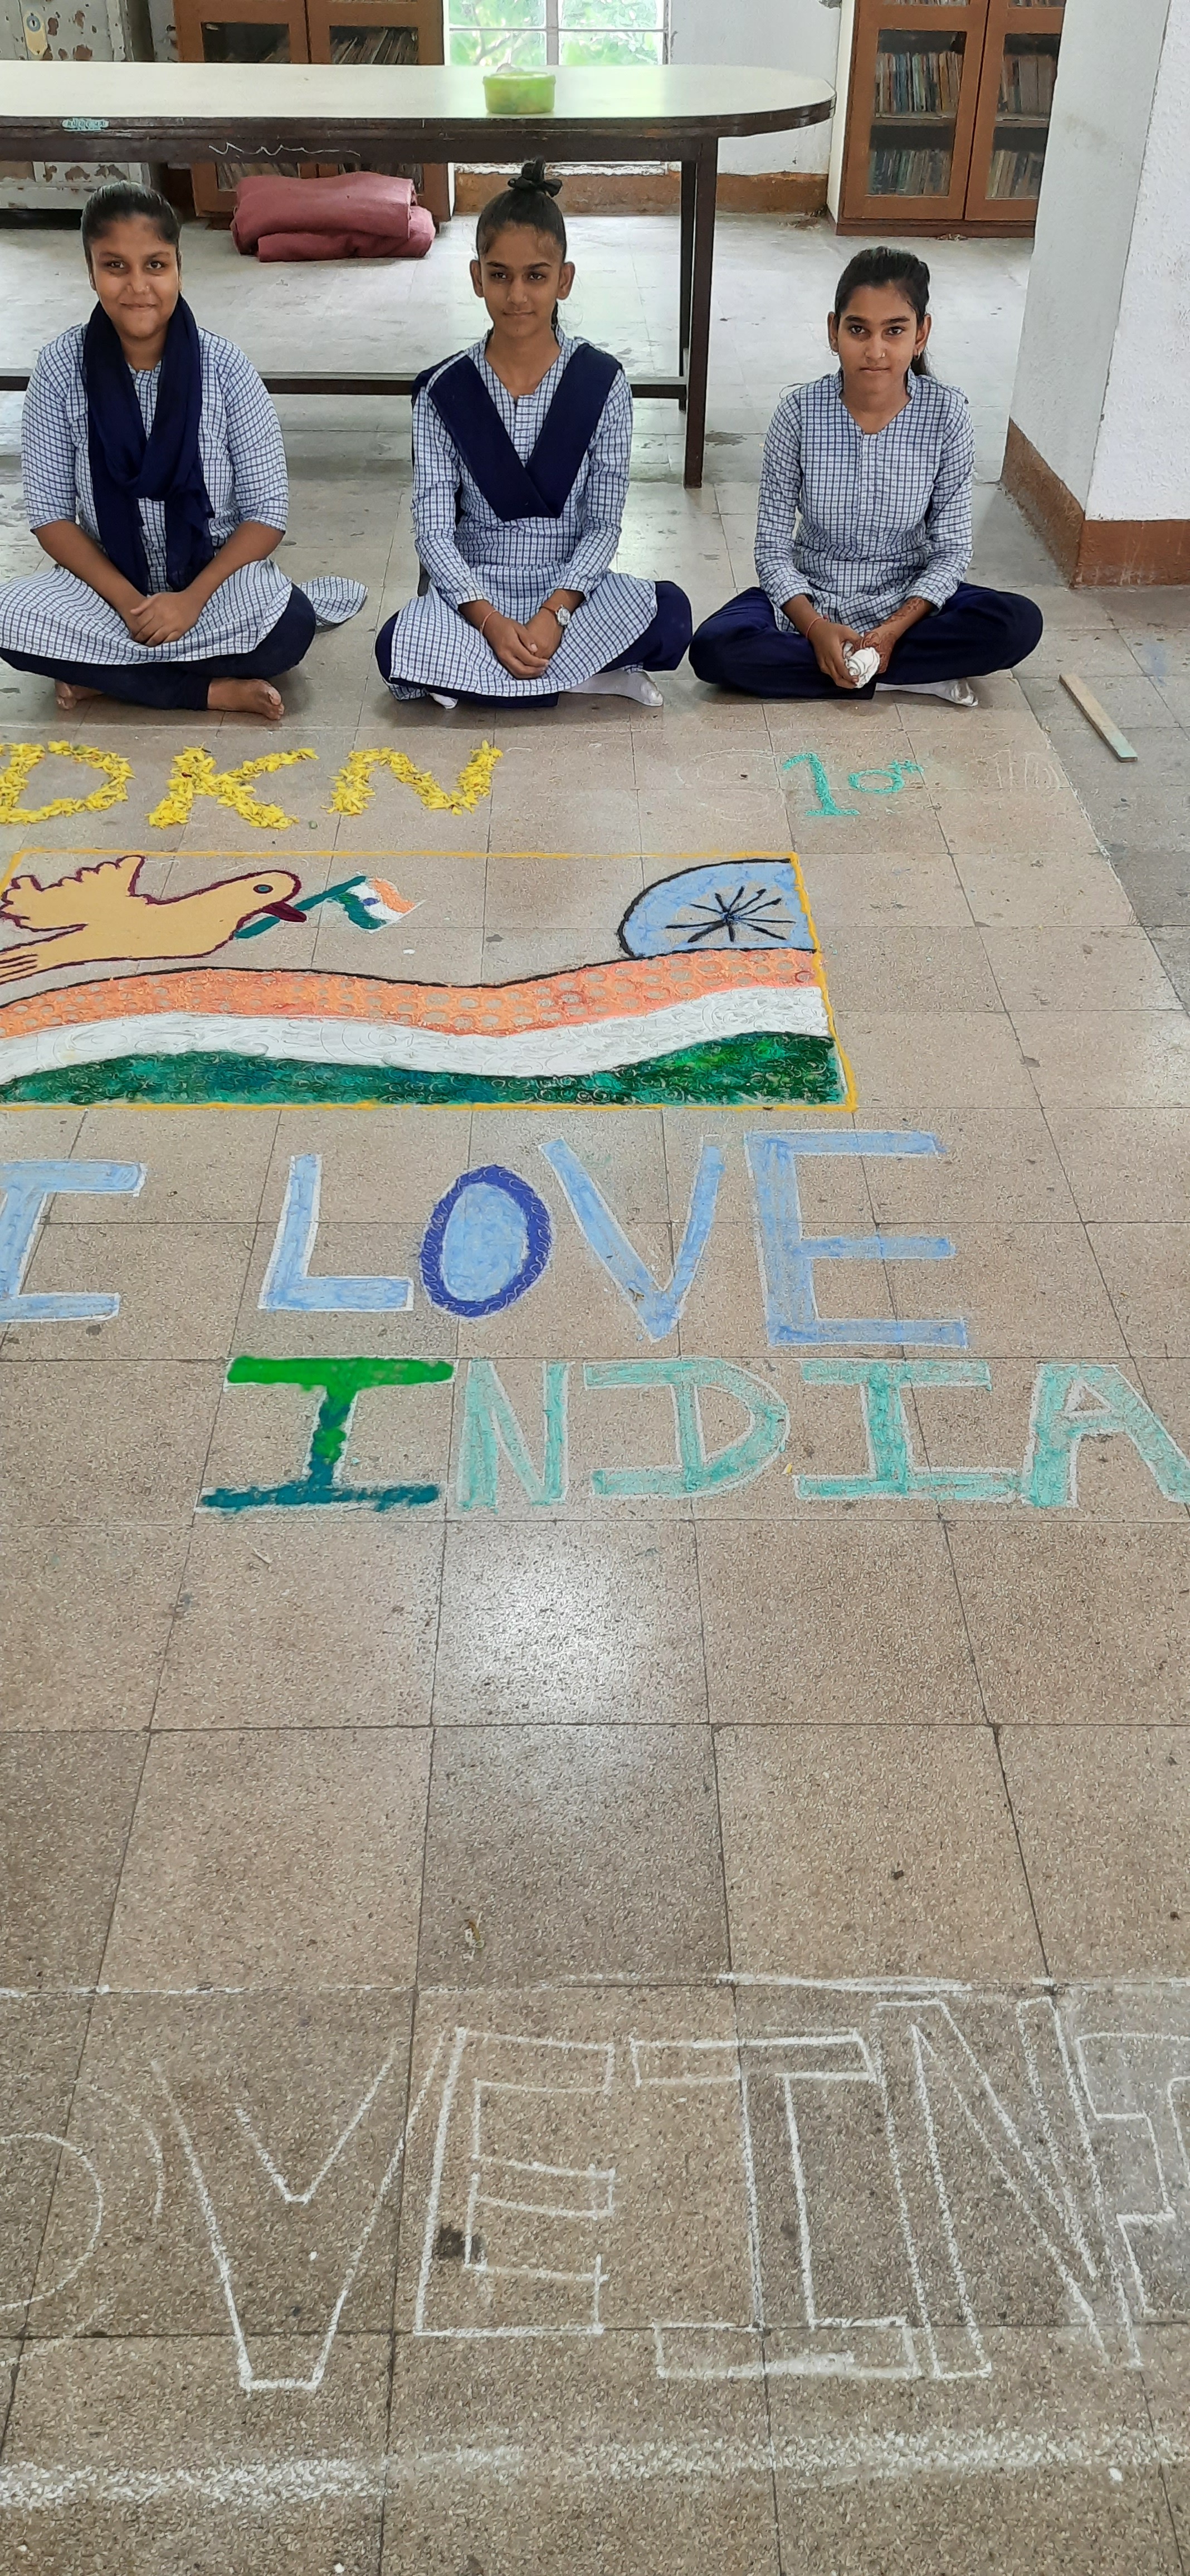 DKN
I LOVE
INDIA
OVE IN